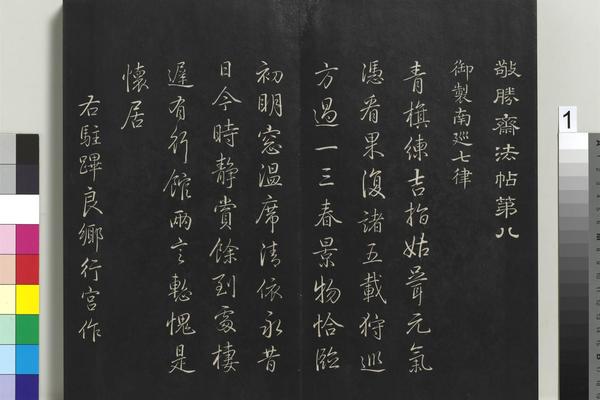 敬勝齋法帖第八
御製南巡七律
青旗練吉指姑胥元氣
憑看果復諸五載狩巡
方過一三春景物恰臨
初明窓溫席清依永昔
日今時靜賞餘到處棲
遲有行館兩言慙愧是
懷居
右駐蹕良鄉行宮作
1